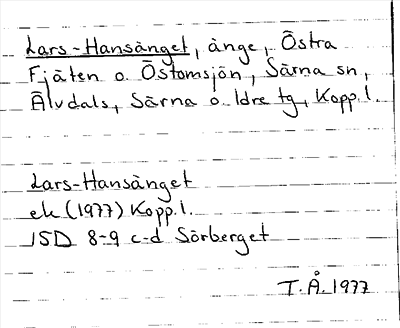 Lars-Hansänget, änge, Östra
Fjäten o. Östomsjön, Särna sn,
Älvdals, Särna o. Idre tg, Kopp. l.
Lars-Hansänget
ek (1977) Kopp. l.
15D 8-9 c-d Sörberget
T. Å. 1977